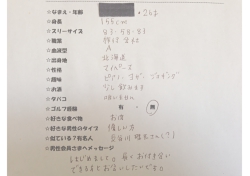 ☆なまえ・年齢 24才
☆身長 155cm
☆スリーサイズ 83・58・83
☆職業
☆血液型 A
☆出身地 北海道
☆性格 マイペース
☆趣味 ピアノ、ヨガ、
☆お酒 少し飲めます
☆タバコ 吸いません
☆ゴルフ経験 有・無
☆好きな食べ物 お肉
☆好きな男性のタイプ 優しい方
☆似ている?有名人
☆男性会員さまへメッセージ
はじめまして。長くお付き合い
できる方とお会いしたいです。